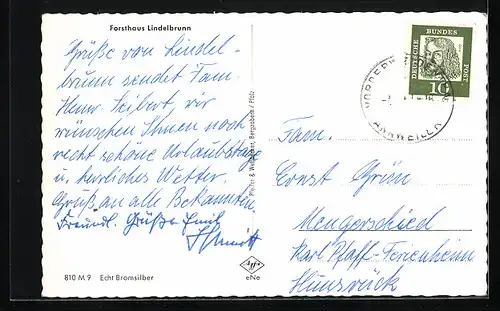 Forsthaus Lindelbrunn
Grüße von Lindel-
brunn sendet Fam.
Henr. Seibert, wir
wünschen Ihnen noch
recht schöne Urlaubstage
u. herrliches Wetter.
Gruß an alle Bekannten
Freundl. Grüße Emil
Schmitt
810 M 9 Echt Bromsilber
Bergzabern / Pfalz
Agfa
eNe
DEUTSCHE BUNDES POST
10
ANNWEILER
Fam.
Ernst Grün
Mengerschied
Karl Pfaff-Ferienheim
Hunsrück